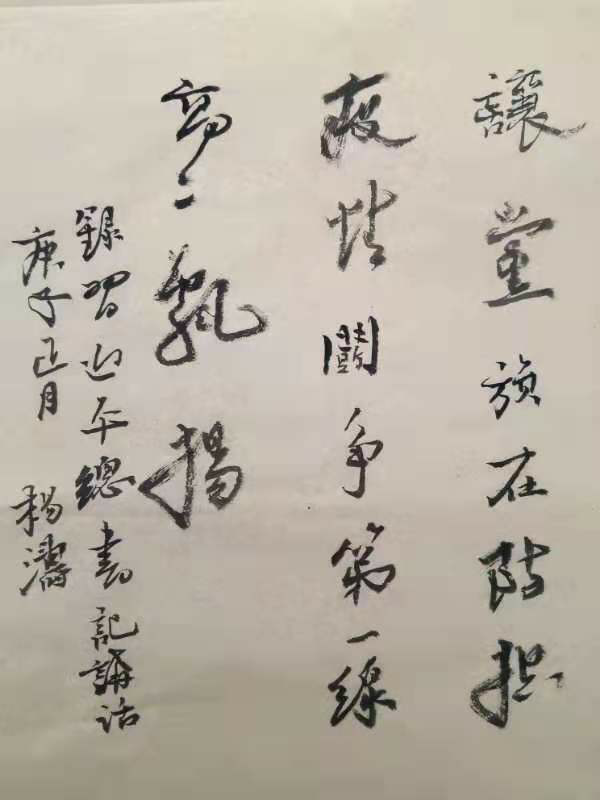 讓黨旗在防控
疫情鬭争第一線
高〻飄揚
錄習近平總書記講話
庚子正月 楊濤